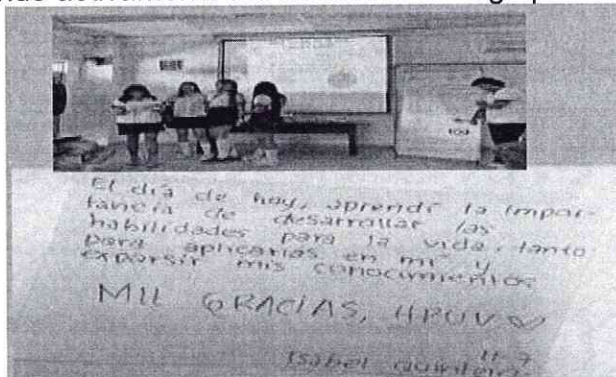 El día de hoy, aprendí la impor-
tancia de desarrollar las
habilidades para la vida, tanto
para aplicarlas en mi y
exparsir mis conocimientos
MIL GRACIAS, HPUV
11-7
Isabel Quintero